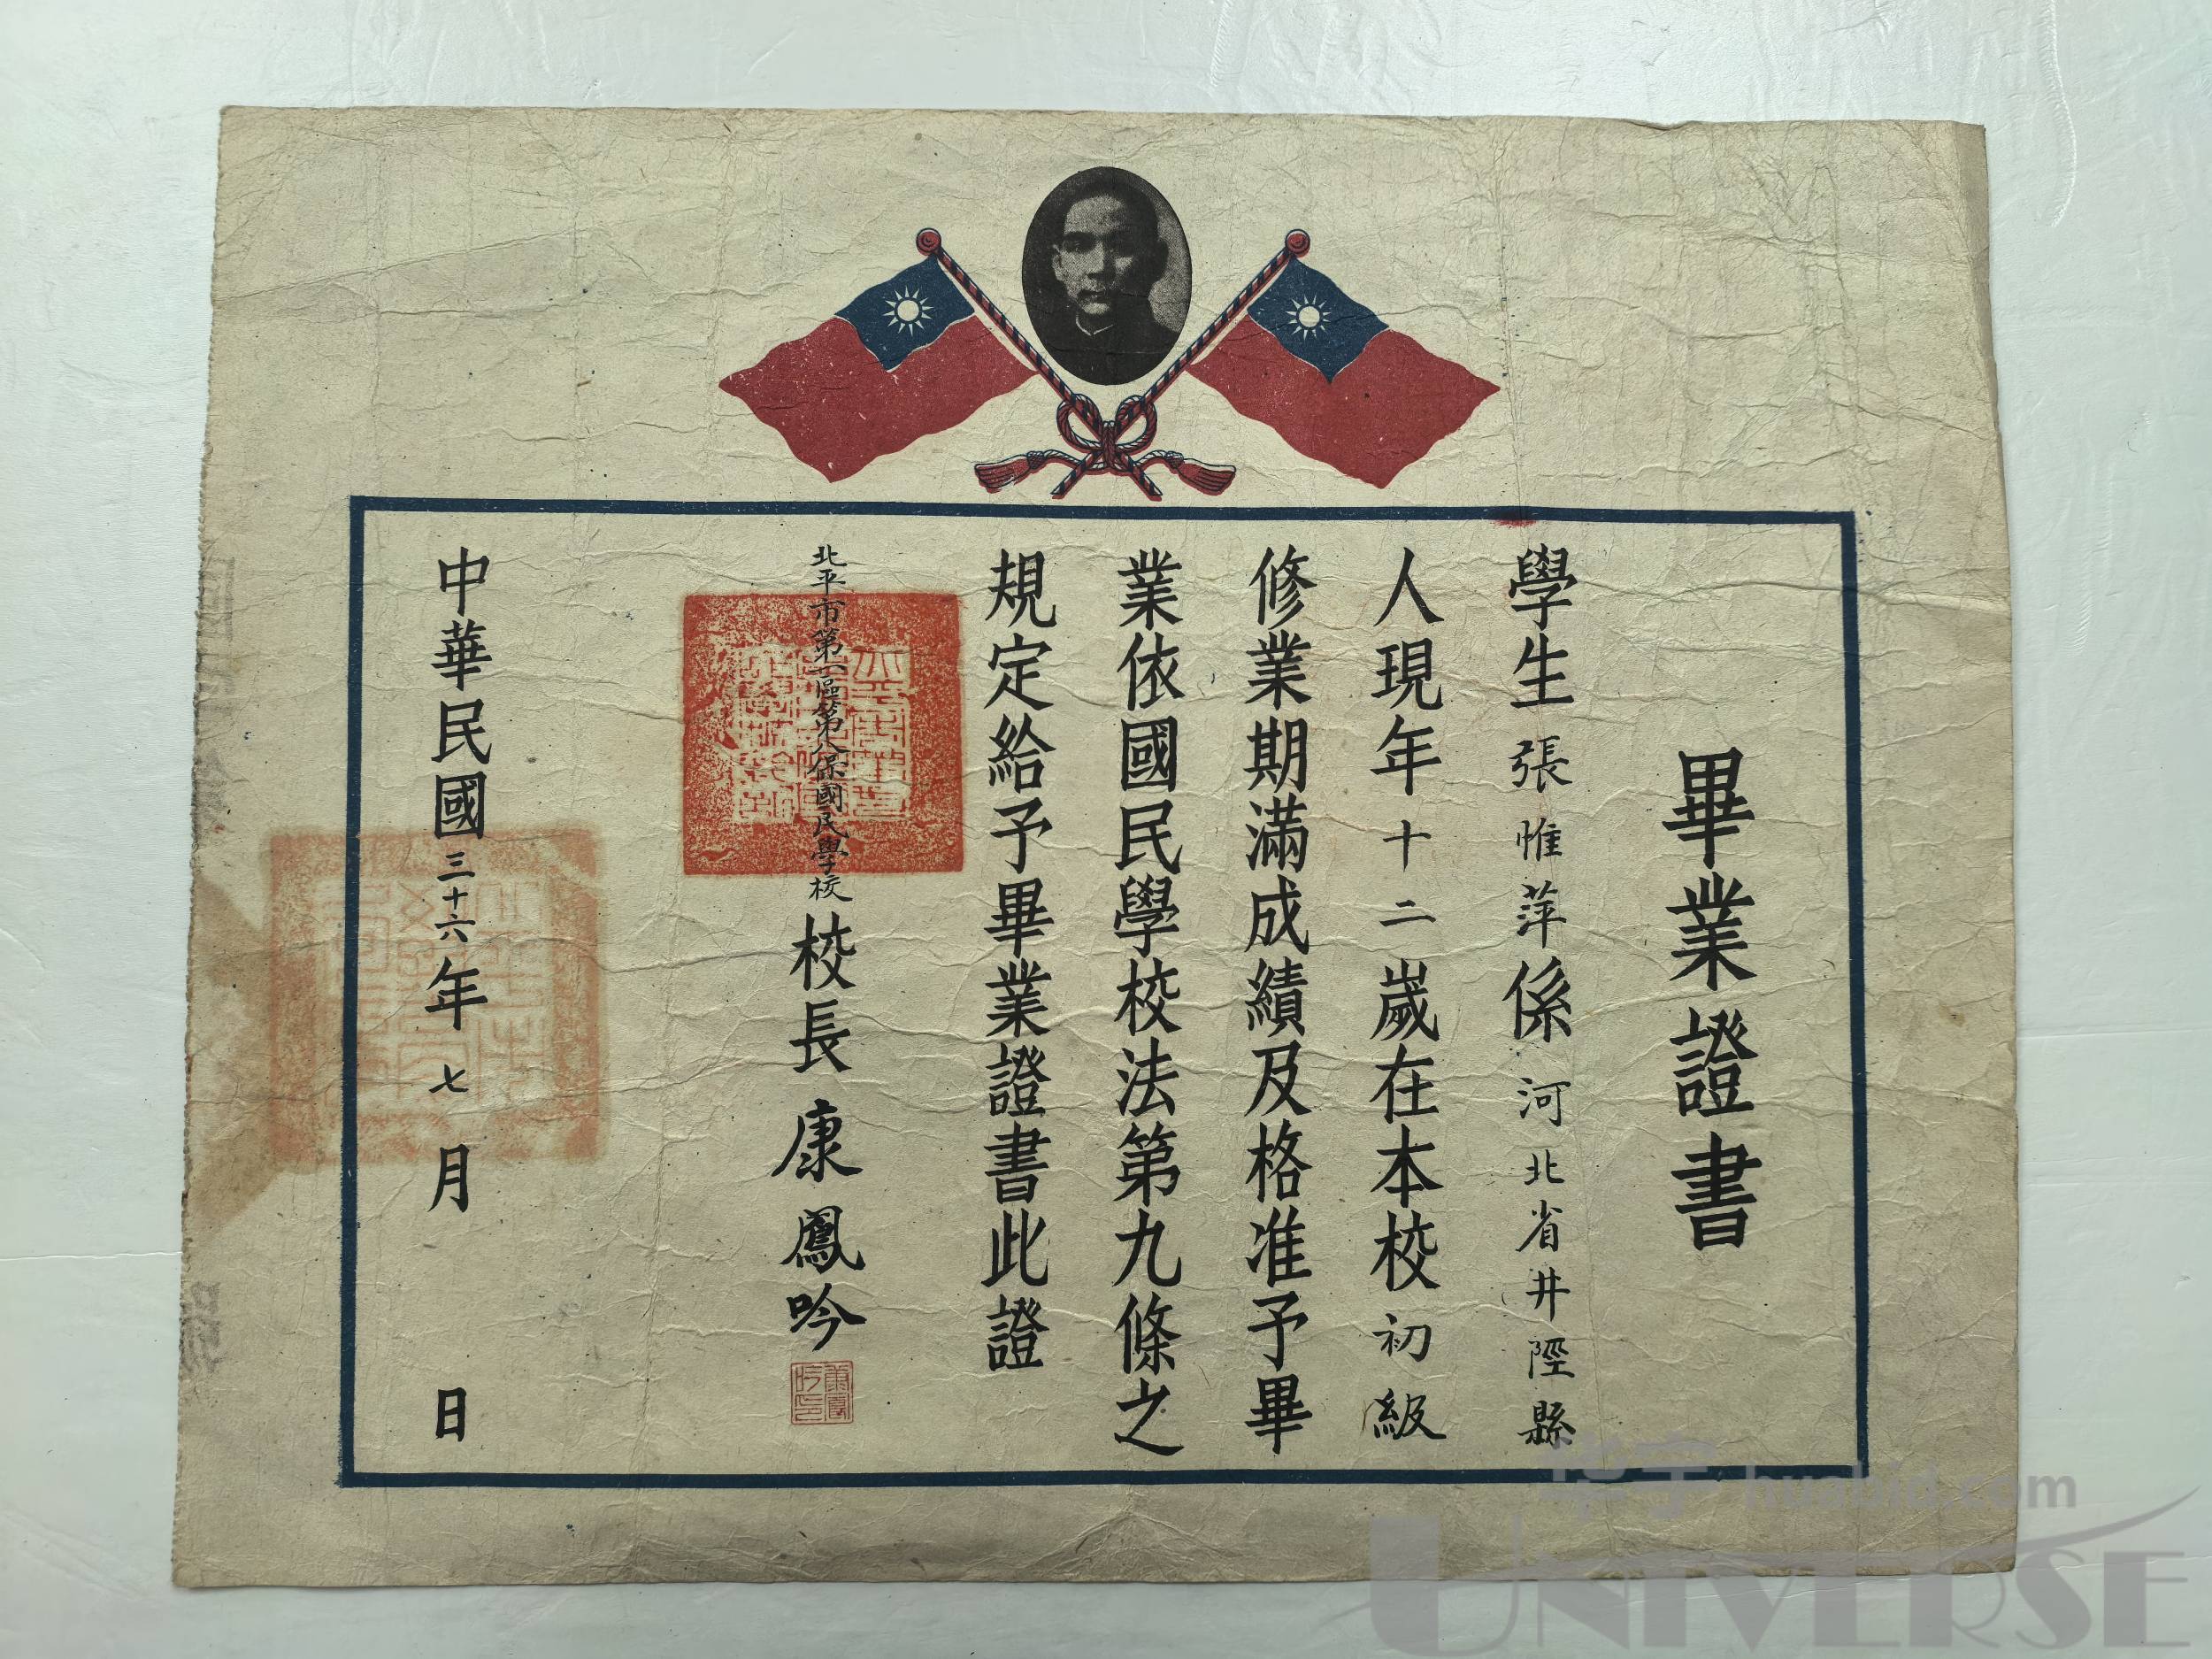 畢業證書
學生張惟萍係河北省井陘縣
人現年十二歲在本校初級
修業期滿成績及格准予畢
業依國民學校法第九條之
規定給予畢業證書此證
北平市第一區第八保國民學校校長康鳳吟
康鳳吟印
中華民國三十六年七月 日
华宇 huabid.com
UNIVERSE